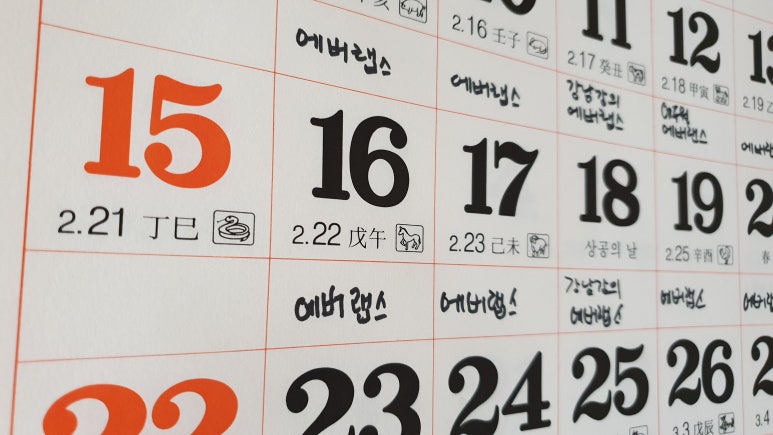 11
12
2.16 壬子
2.17 癸丑
2.18 甲寅
2.19
에버랩스
에버랩스
강남강의
에버랩스
에버랩스
15
16
17
18
19
2.21 丁巳
2.22 戊午
2.23 己未
상공의 날
2.25 辛酉
에버랩스
에버랩스
강남강의
에버랩스
에버랩스
22
23
24
25
26
3.3 戊辰
3.4